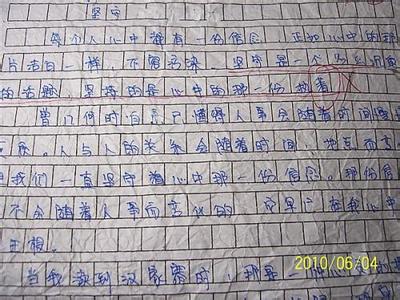 坚守
每个人心中都有一份信念,正如心中的那
片洁白一样,不曾污染。坚守是一个
的话题,坚持的是心中的那一份执着
曾几何时自己只懂得人事会随着时间
人与人的关系会随着时间、地点而
我们一直坚守着心中那一份信念。那份信
不会随着人事而变化的,它早已在我心中
当我读到汉家寨时,那是一
2010.06.04